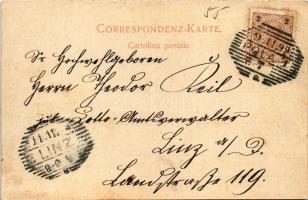 55
CORRESPONDENZ-KARTE.
Cartolina postale.
Sr Hochwohlgeboren
Herrn Theodor Keil
Lotto-Amtsverwalter
Linz a/D.
Landstraße 119.
POLA 1
LINZ